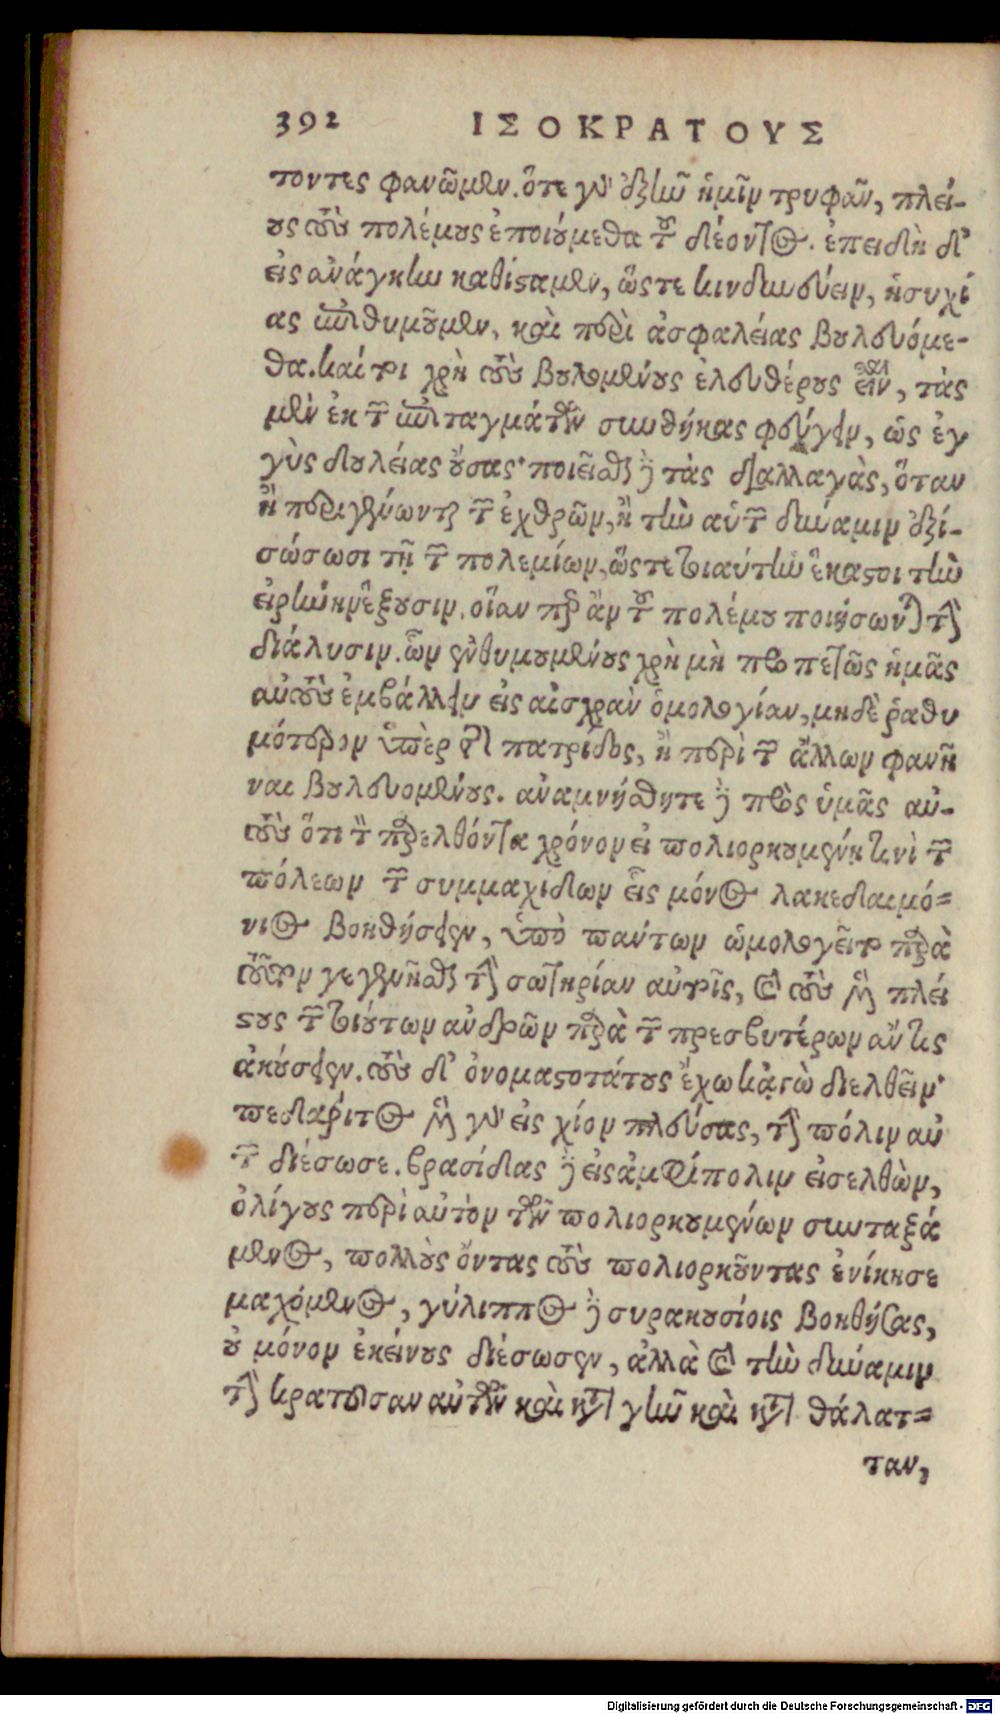 392 ΙΣΟΚΡΑΤΟΥΣ
τοντες φανῶμεν. ὅτε γὸ ἐξῆν ἡμῖν τρυφᾶν, πλεί-
ους τοὺς πολέμους ἐποιούμεθα τοῦ δέοντος. ἐπειδὴ δ'
εἰς ἀνάγκην καθίσαμεν, ὥστε κινδυνεύειν, ἡσυχί
ας ἐπιθυμοῦμεν, καὶ περὶ ἀσφαλείας βουλευόμε-
θα. καίτοι χρὴ τοὺς βουλομένους ἐλευθέρους εἶναι, τὰς
μὲν ἐκ τῶν ἐπιταγμάτων συνθήκας φεύγειν, ὡς ἐγ
γὺς δουλείας οὔσας· ποιεῖσθαι δὲ τὰς διαλλαγὰς, ὅταν
ἢ περιγένωνται τῶν ἐχθρῶν, ἢ τὴν αὑτῶν δύναμιν ἐξί-
σώσωσι τῇ τῶν πολεμίων, ὥστε τοιαύτην ἕκαστοι τὴν
εἰρήνην ἕξουσιν, οἵαν περ ἂν τοῦ πολέμου ποιήσωνται τὴν
διάλυσιν. ὧν ἐνθυμουμένους χρὴ μὴ προπετῶς ἡμᾶς
αὐτοὺς ἐμβάλλειν εἰς αἰσχρὰν ὁμολογίαν, μηδὲ ῥαθυ
μότερον ὑπὲρ τῆς πατρίδος, ἢ περὶ τῶν ἄλλων φανῆ
ναι βουλευομένους. ἀναμνήσθητε δὲ πρὸς ὑμᾶς αὐ-
τοὺς ὅτι τὸν παρελθόντα χρόνον εἰ πολιορκουμένῃ τινὶ τῶν
πόλεων τῶν συμμαχίδων εἷς μόνος λακεδαιμό-
νιος βοηθήσειεν, ὑπὸ πάντων ὡμολογεῖτο παρὰ
τοῦτον γεγενῆσθαι τὴν σωτηρίαν αὐτοῖς, καὶ τοὺς μὲν πλεί
στους τῶν τοιούτων ἀνδρῶν παρὰ τῶν πρεσβυτέρων ἄν τις
ἀκούσειεν. τοὺς δ' ὀνομαστοτάτους ἔχω κἀγὼ διελθεῖν·
πεδάριτος μὲν γὸ εἰς χίον πλεύσας, τὴν πόλιν αὐ
τῶν διέσωσε. βρασίδας δὲ εἰς ἀμφίπολιν εἰσελθὼν,
ὀλίγους περὶ αὐτὸν τῶν πολιορκουμένων συνταξά
μενος, πολλοὺς ὄντας τοὺς πολιορκοῦντας ἐνίκησε
μαχόμενος, γύλιππος δὲ συρακουσίοις βοηθήσας,
οὐ μόνον ἐκείνους διέσωσεν, ἀλλὰ καὶ τὴν δύναμιν
τὴν κρατοῦσαν αὐτῶν καὶ κατὰ γῆν καὶ κατὰ θάλατ-
ταν,
Digitalisierung gefördert durch die Deutsche Forschungsgemeinschaft - DFG